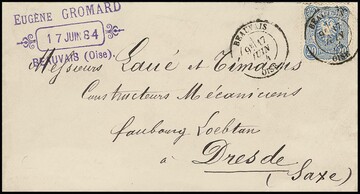 EUGÈNE GROMARD
17 JUIN 84
BEAUVAIS (Oise).
BEAUVAIS
17
JUIN
OISE
BEAUVAIS
OISE
Messieurs Laué et Timaeus
Constructeurs Mécaniciens
faubourg Loebtau
à Dresde
(Saxe)